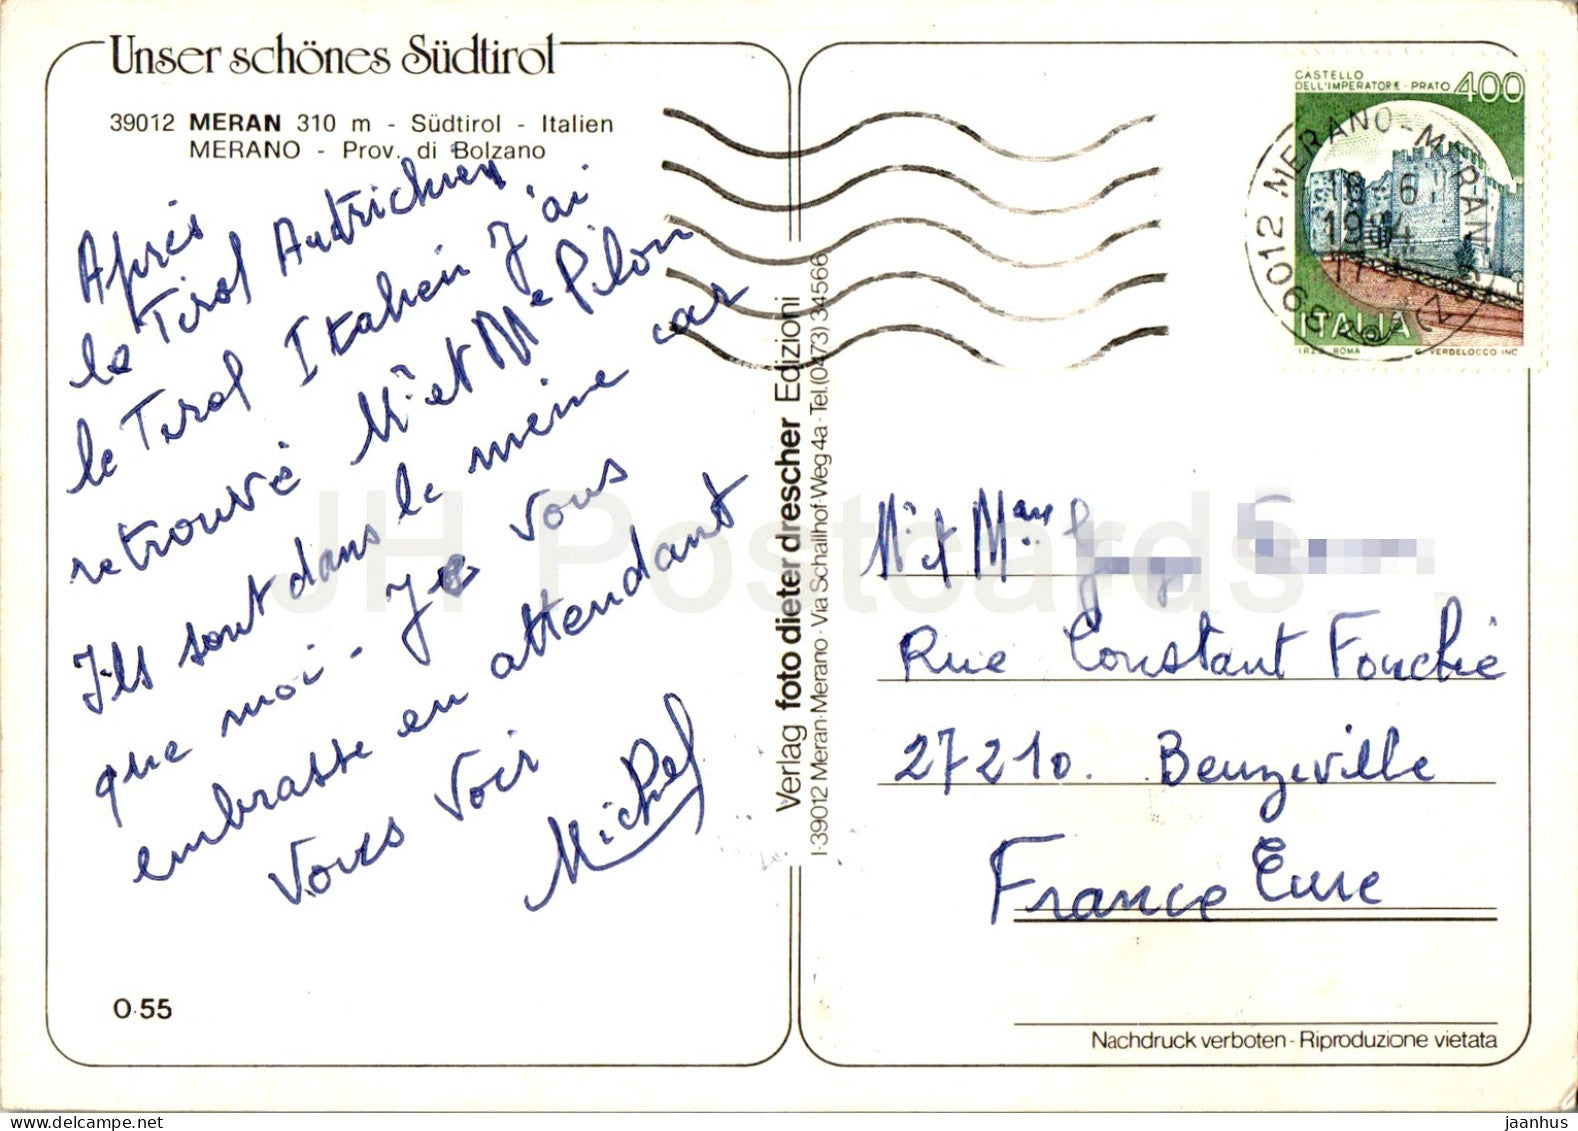 Unser schönes Südtirol
39012 MERAN 310 m - Südtirol - Italien
MERANO - Prov. di Bolzano
Après
le Tirol Autrichien
le Tirol Italien J'ai
retrouvé Mr et Me Pilon
Ils sont dans le meine car
que moi - Je vous
embrasse en attendant
Vous Voir
Michel
O.55
Verlag foto dieter drescher Edizioni
I-39012 Meran-Merano · Via Schallhof-Weg 4a · Tel.(0473) 34566
CASTELLO
DELL'IMPERATORE - PRATO 400
ITALIA
I.P.Z.S. ROMA G. VERDELOCCO INC
39012 MERANO - MERAN
18-6
Mr et Mme
Rue Constant Fouché
27210. Beuzeville
France Eure
Nachdruck verboten - Riproduzione vietata
JH Postcards
jaanhus